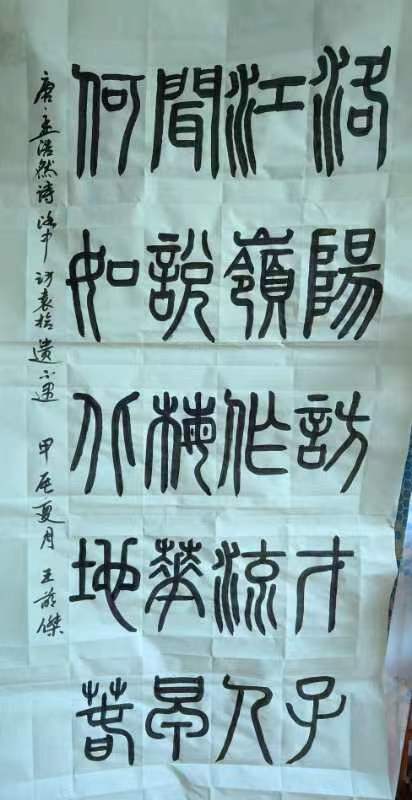 洛陽訪才子
江嶺作流人
聞說梅華早
何如北地萅
唐·孟浩然詩 洛中訪袁拾遺不遇 甲辰夏月 王傑